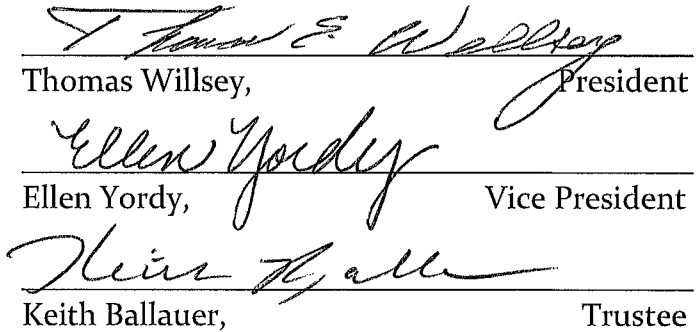 Thomas E Willsey
Thomas Willsey, President
Ellen Yordy
Ellen Yordy, Vice President
Keith Ballauer, Trustee